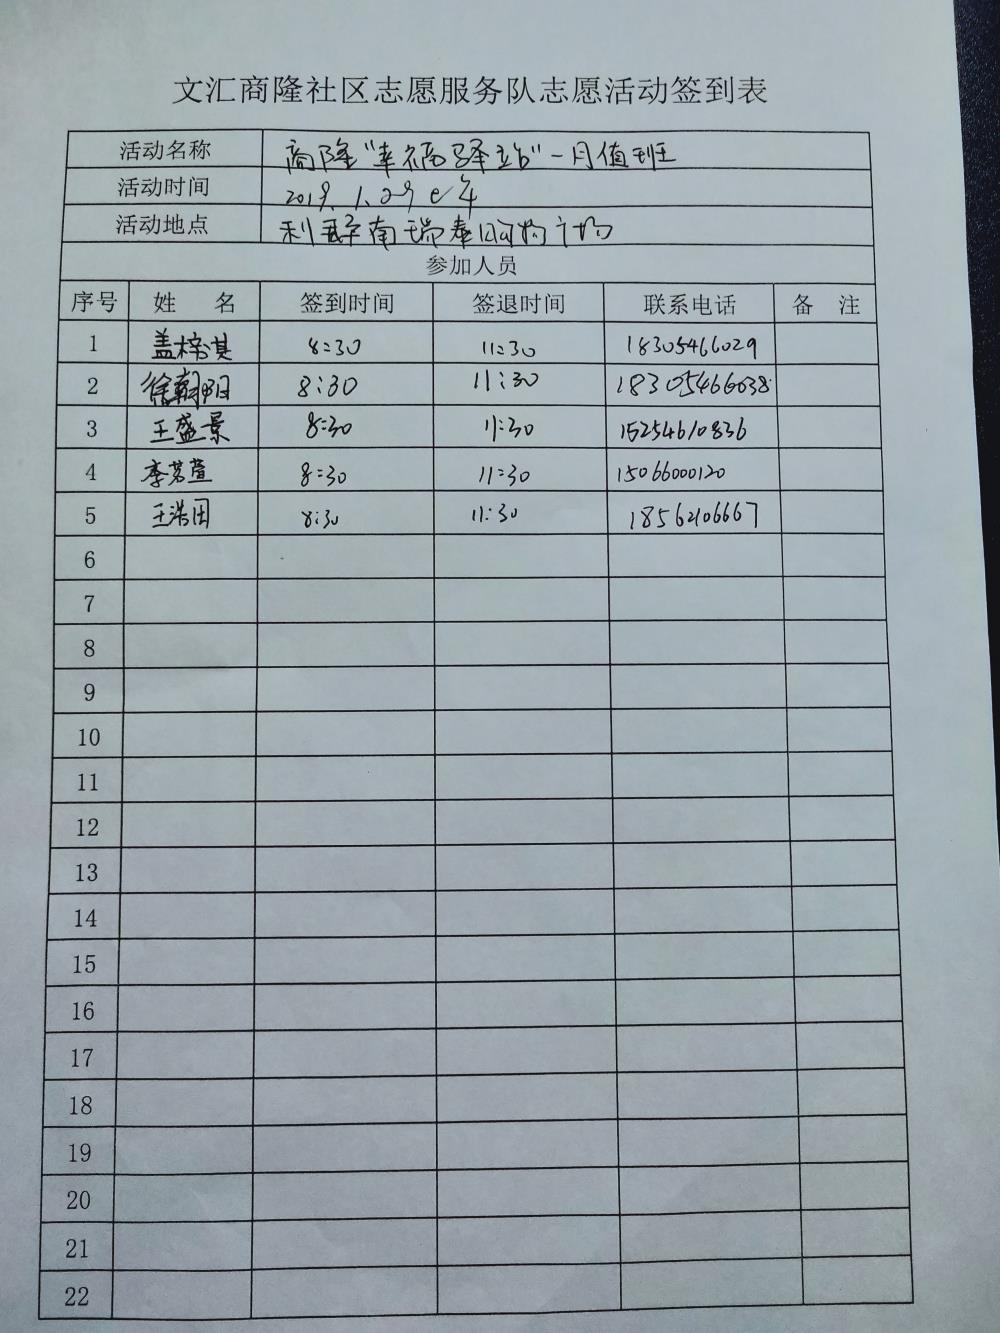 文汇商隆社区志愿服务队志愿活动签到表
活动名称 商隆“幸福驿站”一月值班
活动时间 2019.1.29 上午
活动地点 利群南瑞泰购物广场
参加人员
序号 姓 名 签到时间 签退时间 联系电话 备 注
1 盖梓淇 8:30 11:30 18305466029
2 徐朝阳 8:30 11:30 18305466038
3 王盛景 8:30 11:30 15254610836
4 李茗萱 8:30 11:30 15066000120
5 王浩田 8:30 11:30 18562106667
6
7
8
9
10
11
12
13
14
15
16
17
18
19
20
21
22